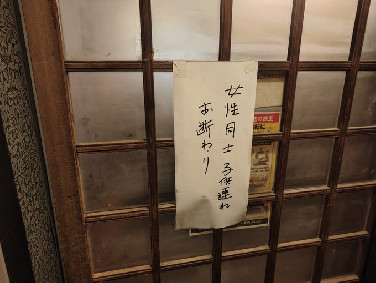 女性同士子供連れ
お断わり